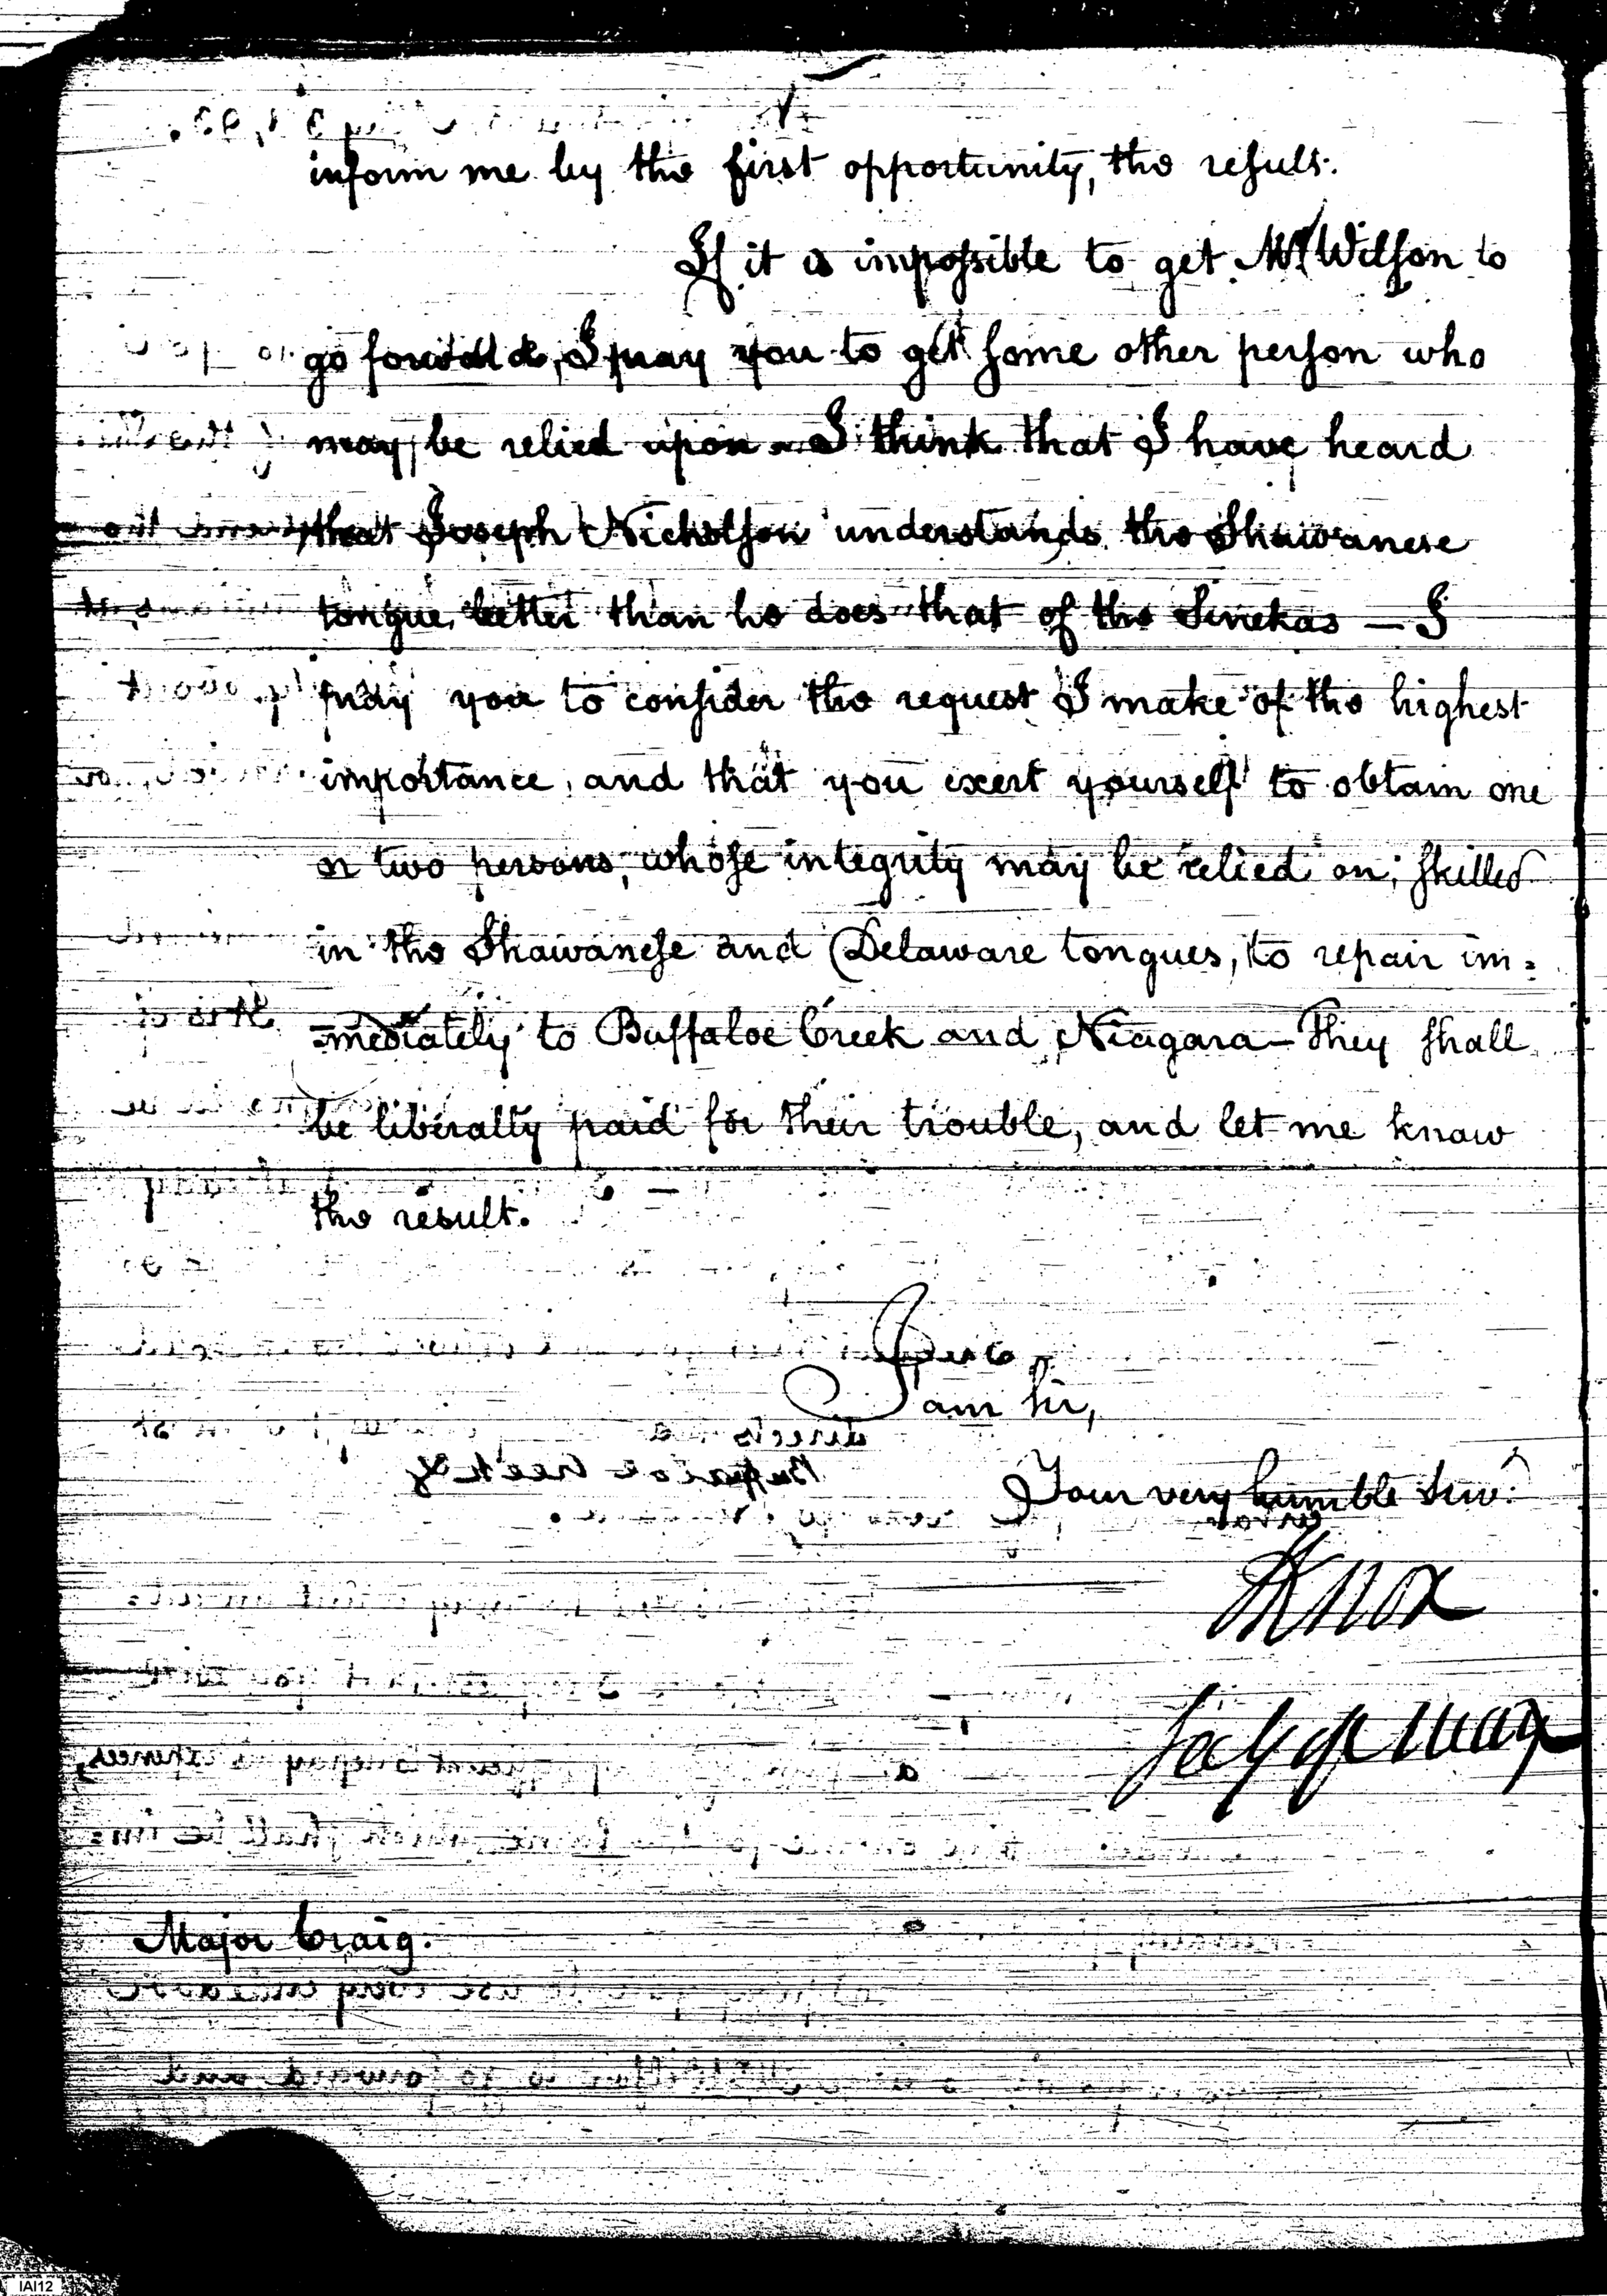 inform me by the first opportunity, the result.
If it is impossible to get Mr. Wilson to
go forward, I pray you to get some other person who
may be relied upon – I think that I have heard
that Joseph Nicholson understands the Shawanese
tongue better than he does that of the Senekas — I
pray you to consider the request I make of the highest
importance, and that you exert yourself to obtain one
or two persons, whose integrity may be relied on; skilled
in the Shawanese and Delaware tongues, to repair im=
=mediately to Buffaloe Creek and Niagara – They shall
be liberally paid for their trouble, and let me know
the result.
I am Sir,
Your very humble Serv.t
HKnox
Secy of War
Major Craig.
IAI12